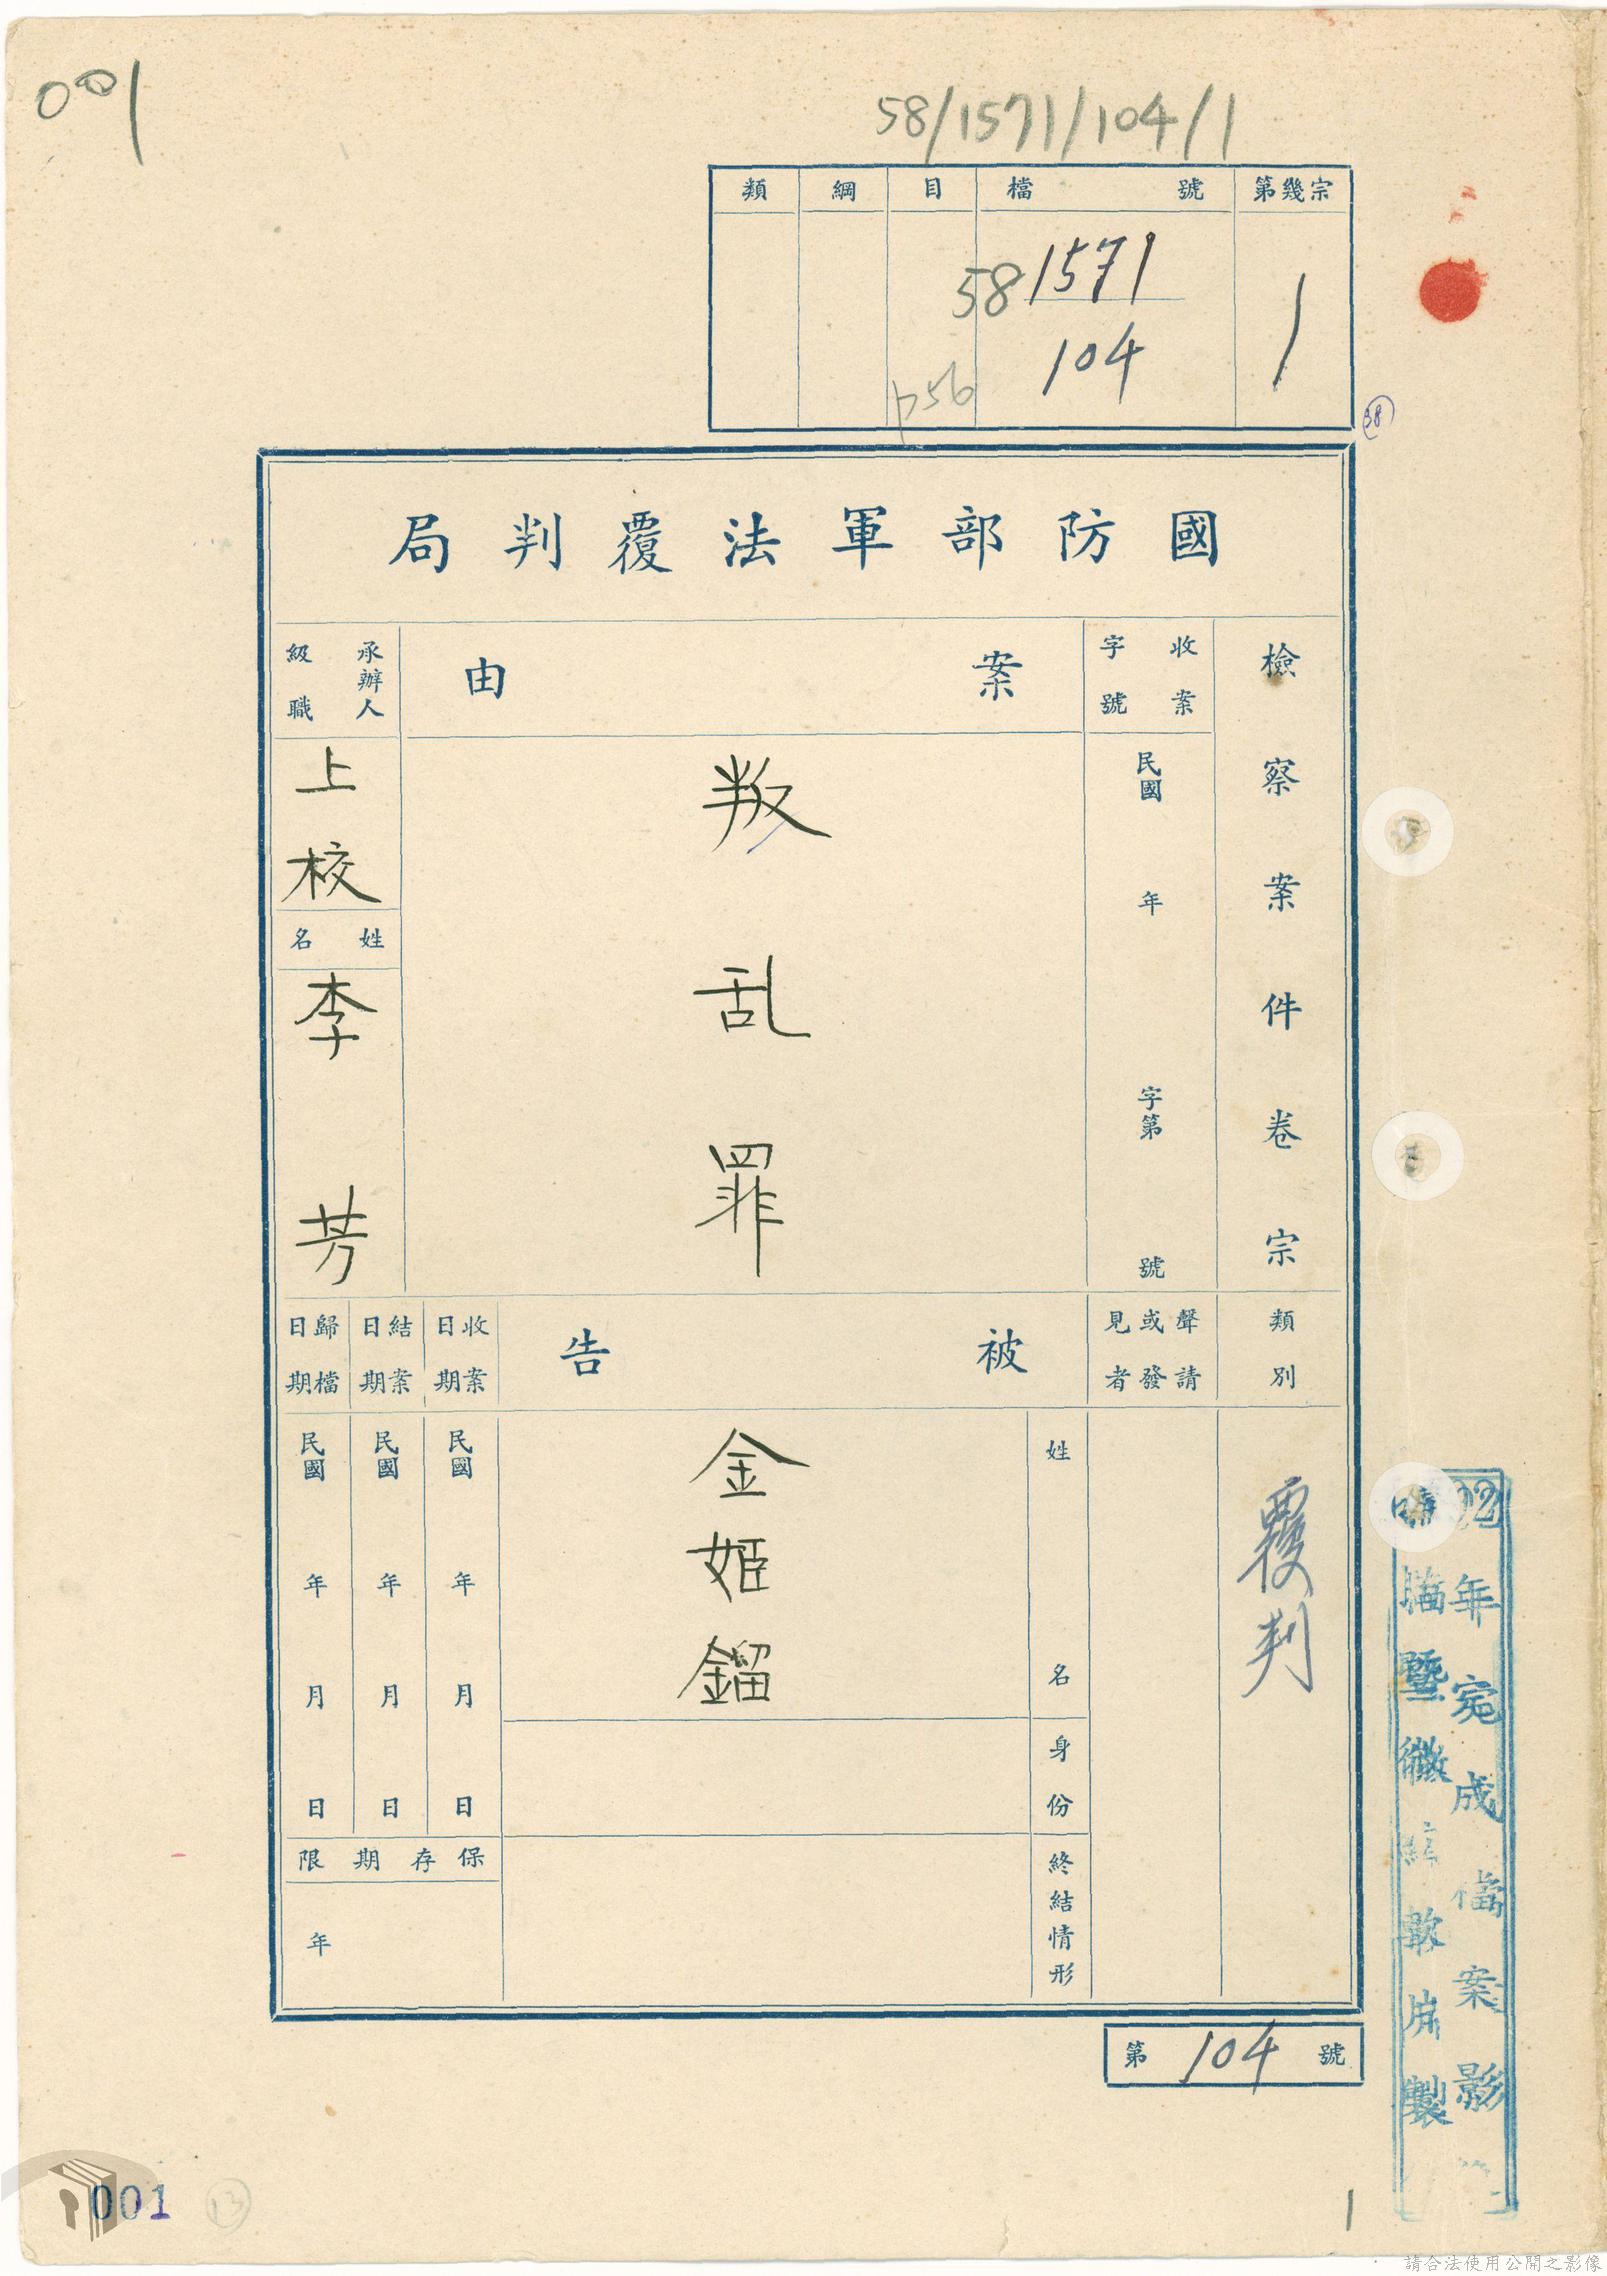 001
58/1571/104/1
第幾宗
檔號
目
綱
類
1
58 1571
104
p56
38
國防部軍法覆判局
檢察案件卷宗
收案字號
民國 年 字第 號
案由
叛乱罪
承辦人級職
上校
姓名
李芳
類別
覆判
聲請或發見者
被告
姓名
金姬鎦
身份
終結情形
收案日期
民國 年 月 日
結案日期
民國 年 月 日
歸檔日期
民國 年 月 日
保存期限
年
第 104 號
年完成檔案影
瞄暨微縮軟片製
001
13
1
請合法使用公開之影像